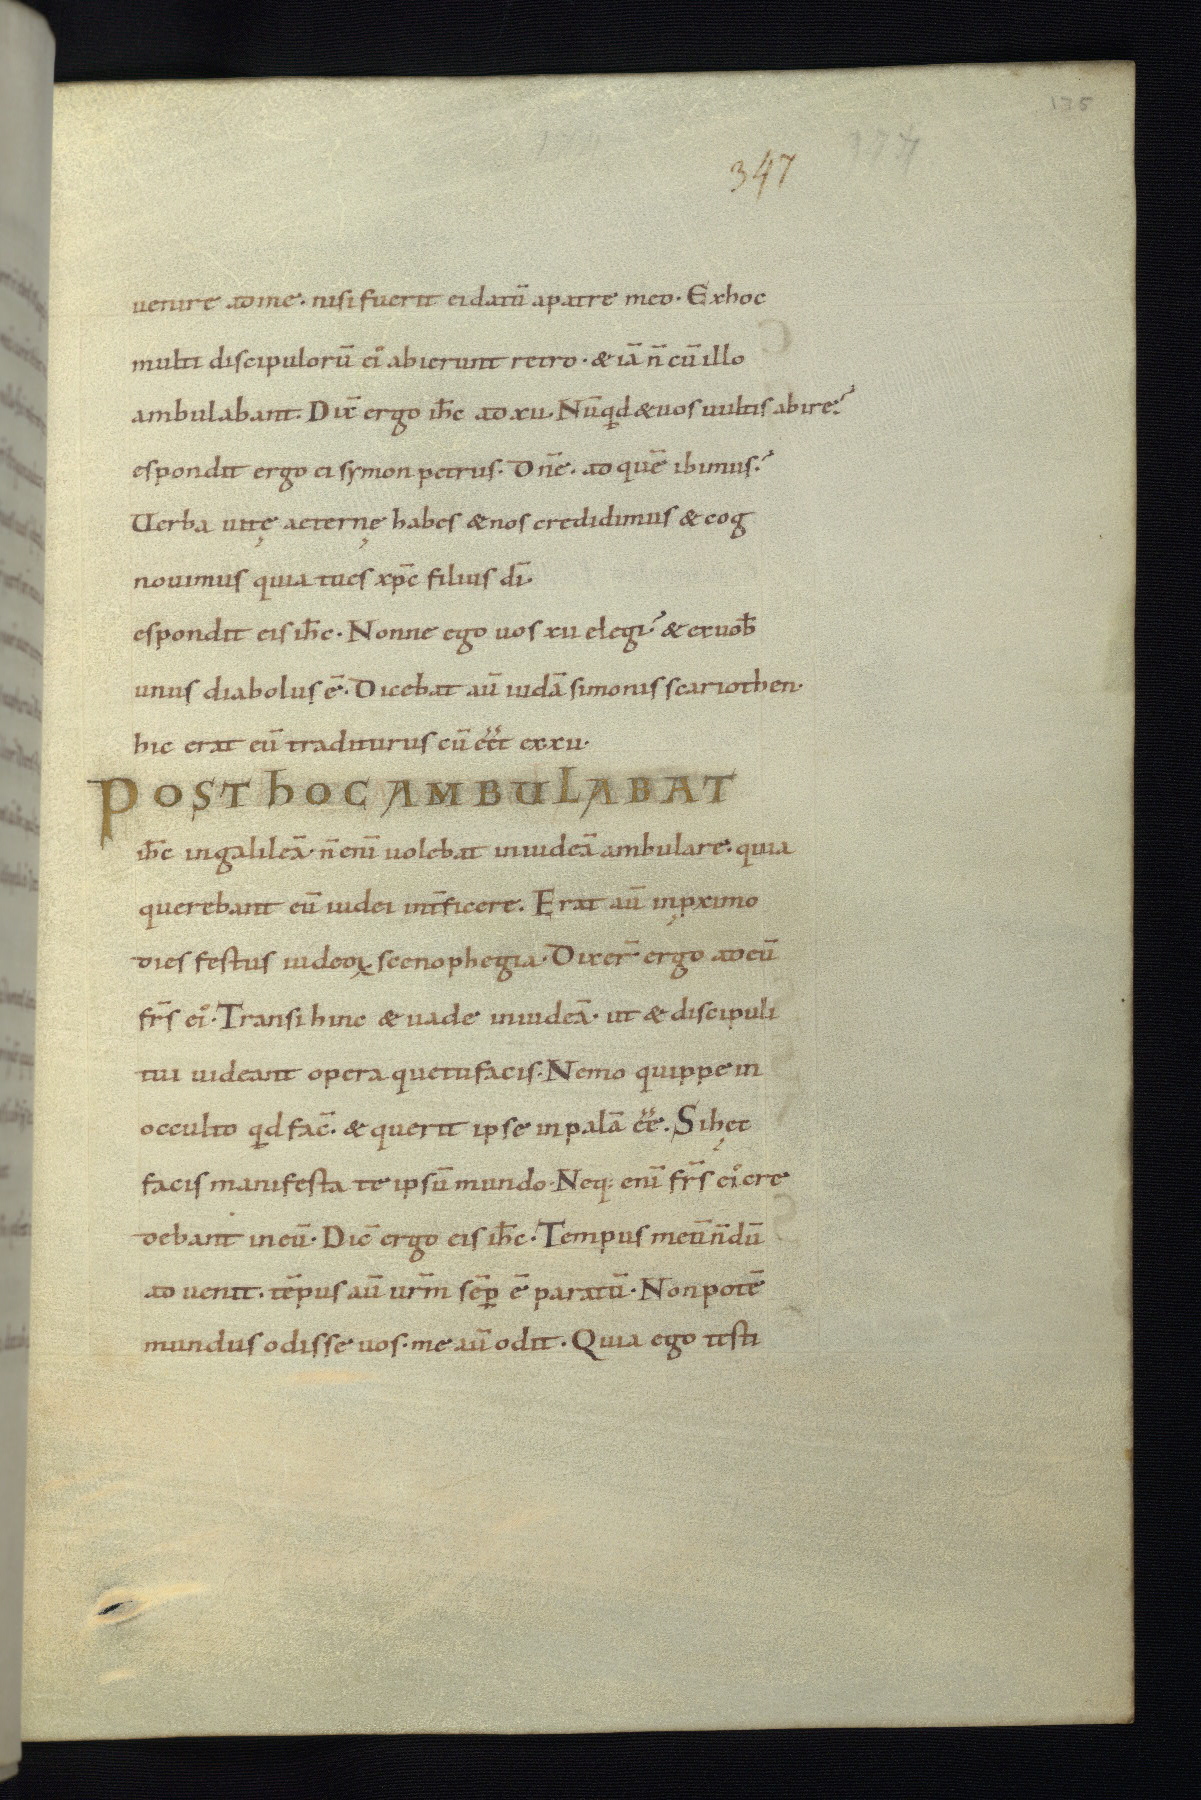 135
347
uenire ad me. nisi fuerit ei datū a patre meo. Ex hoc
multi discipulorū ei᷒ abierunt retro. & iā n̄ cū illo
ambulabant. Dix̄ ergo ih̄c ad xu. Nūqd & uos uultis abire?
espondit ergo ei symon petrus. Dn̄e. ad quē ibimus?
Uerba uitę aeternę habes & nos credidimus & cog
nouimus quia tu es xp̄c filius dī.
espondit eis ih̄c. Nonne ego uos xu elegi? & ex uob̄
unus diabolus ē. Dicebat aū iudā simonis scariothen.
hic erat eū traditurus cū eēt ex xu.
POST hOC AMBULABAT
ih̄c in galileā. n̄ enī uolebat in iudeā ambulare. quia
querebant eū iudei int̄ficere. Erat aū in ꝓximo
dies festus iudeoꝝ scenophegia. Dixer̄ ergo ad eū
fr̄s ei᷒. Transi hinc & uade in iudeā. ut & discipuli
tui uideant opera que tu facis. Nemo quippe in
occulto qd fac̄. & querit ipse in palā eē. Si hęc
facis manifesta te ipsū mundo. Neq; enī fr̄s ei᷒ cre
debant in eū. Dic̄ ergo eis ih̄c. Tempus meū n̄dū
aduenit. tēpus aū ur̄m sēꝑ ē paratū. Non potē
mundus odisse uos. me aū odit. Quia ego testi